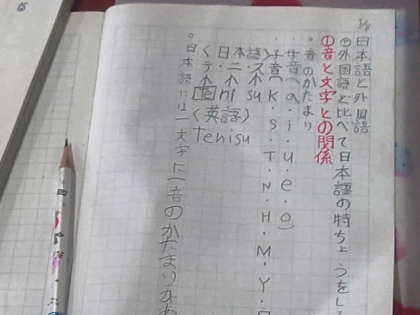 3/8
日本語と外国語
◎外国語と比べて日本語の特ちょうをし
①音と文字との関係
。音のかたまり
母音(a・i・u・e・o)
子音(K・S・T・N・H・M・Y・
(日本語)
(英語)
ni su
Tenisu
。日本語には一文字に一音のかたまり